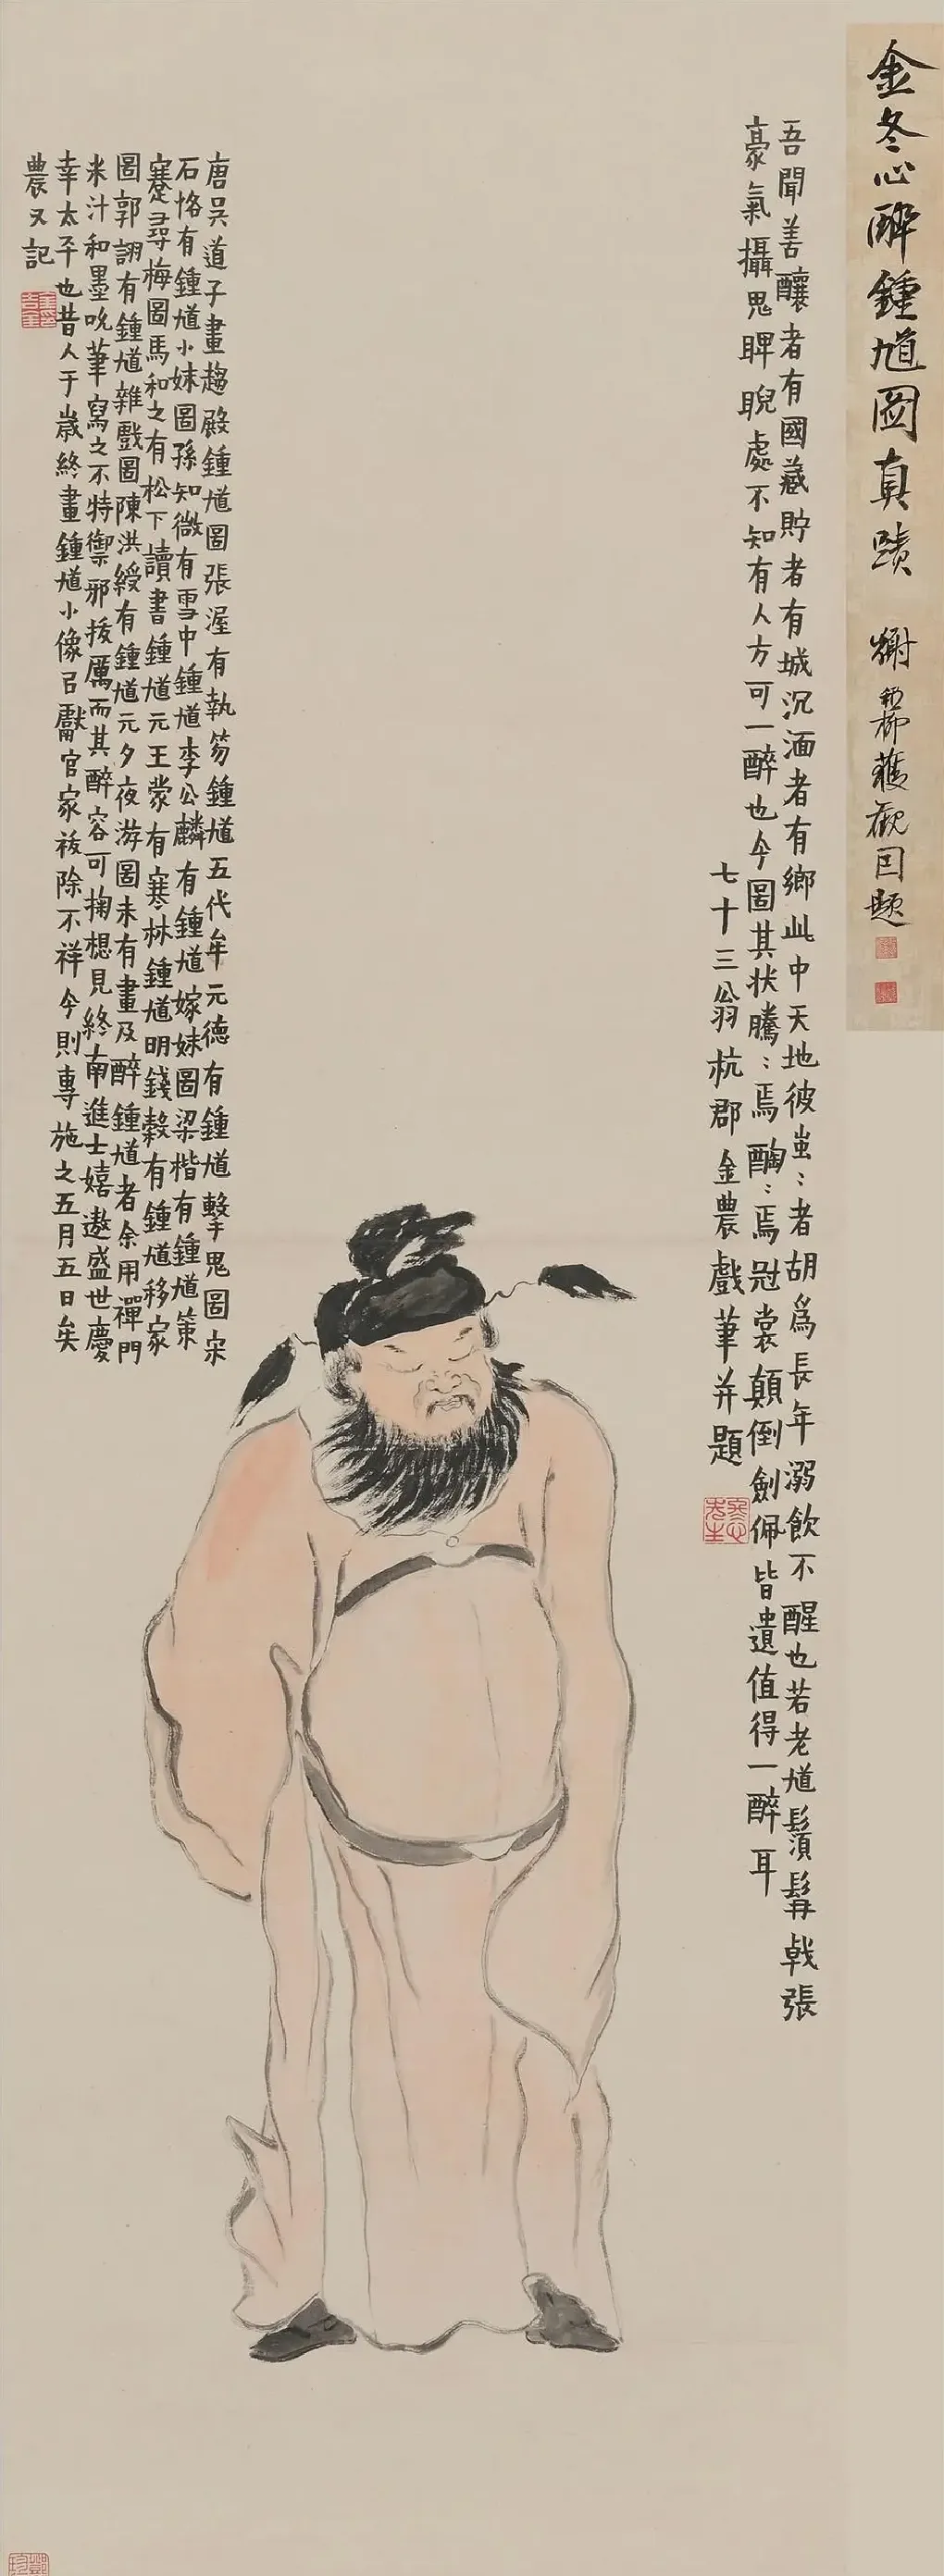 金冬心醉鍾馗圖真蹟
獲觀因題
吾聞善釀者有國藏貯者有城沉湎者有鄉此中天地彼蚩：者胡為長年溺飲不醒也若老馗鬚髯戟張
豪氣攝鬼睥睨處不知有人方可一醉也今圖其状騰：焉醄：焉冠裳顛倒劍佩皆遺值得一醉耳
七十三翁杭郡金農戲筆并題
唐吳道子畫趨殿鍾馗圖張渥有執笏鍾馗五代牟元德有鍾馗擊鬼圖宋
石恪有鍾馗小妹圖孫知微有雪中鍾馗李公麟有鍾馗嫁妹圖梁楷有鍾馗策
蹇尋梅圖馬和之有松下讀書鍾馗元王蒙有寒林鍾馗明錢穀有鍾馗移家
圖郭詡有鍾馗雜戲圖陳洪綬有鍾馗元夕夜游圖未有畫及醉鍾馗者余用禪門
米汁和墨吮筆寫之不特禦邪拔厲而其醉容可掬想見終南進士嬉遨盛世慶
幸太平也昔人于歲終畫鍾馗小像㠯獻官家祓除不祥今則專施之五月五日矣
農又記